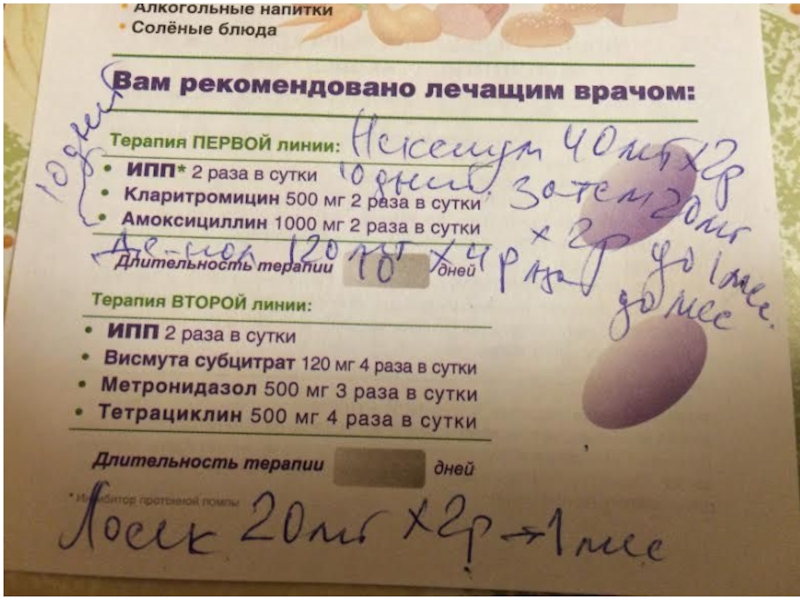 • Алкогольные напитки
• Солёные блюда
Вам рекомендовано лечащим врачом:
10 дней
Терапия ПЕРВОЙ линии: Нексиум 40мг х2р
• ИПП* 2 раза в сутки 10 дней, затем 20мг
• Кларитромицин 500 мг 2 раза в сутки х 2р до 1 мес.
• Амоксициллин 1000 мг 2 раза в сутки
Де-нол 120 мг х 4р до мес
Длительность терапии 10 дней
Терапия ВТОРОЙ линии:
• ИПП 2 раза в сутки
• Висмута субцитрат 120 мг 4 раза в сутки
• Метронидазол 500 мг 3 раза в сутки
• Тетрациклин 500 мг 4 раза в сутки
Длительность терапии дней
* Ингибитор протонной помпы
Лосек 20мг х2р → 1 мес